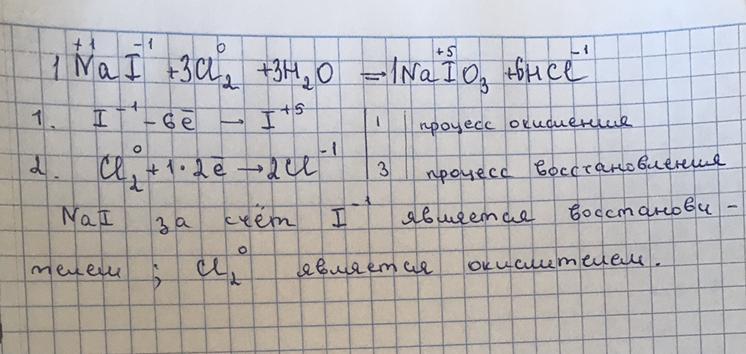 1NaI⁺¹⁻¹ + 3Cl₂⁰ + 3H₂O = 1NaI⁺⁵O₃ + 6HCl⁻¹
1. I⁻¹ - 6ē → I⁺⁵ | 1 | процесс окисления
2. Cl₂⁰ + 1·2ē → 2Cl⁻¹ | 3 | процесс восстановления
NaI за счёт I⁻¹ является восстанови-
телем; Cl₂⁰ является окислителем.